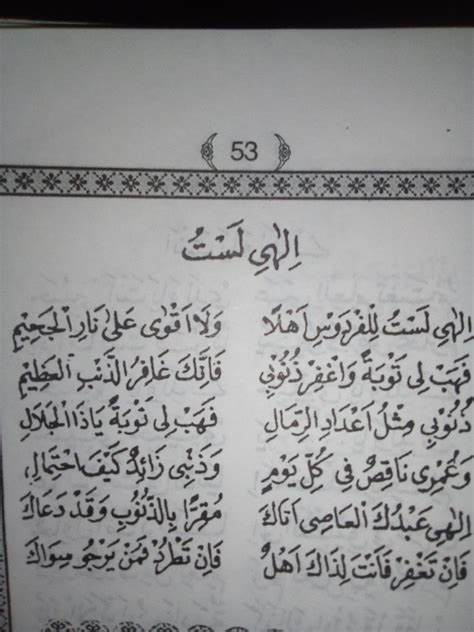 53
اِلٰهِي لَسْتُ
اِلٰهِي لَسْتُ لِلْفِرْدَوْسِ اَهْلًا وَلَا اَقْوٰى عَلىٰ نَارِ الْجَحِيْمِ
فَهَبْ لِى تَوْبَةً وَاغْفِرْ ذُنُوْبِي فَاِنَّكَ غَافِرُ الذَّنْبِ الْعَظِيْمِ
ذُنُوْبِي مِثْلُ اَعْدَادِ الرِّمَالِ فَهَبْ لِى تَوْبَةً يَاذَا الْجَلَالِ
وَعُمْرِى نَاقِصٌ فِي كُلِّ يَوْمٍ وَذَنْبِى زَائِدٌ كَيْفَ احْتِمَالِ
اِلٰهِي عَبْدُكَ الْعَاصِى اَتَاكَ مُقِرًّا بِالذُّنُوْبِ وَقَدْ دَعَاكَ
فَاِنْ تَغْفِرْ فَاَنْتَ لِذَاكَ اَهْلٌ فَاِنْ تَطْرُدْ فَمَنْ يَرْجُو سِوَاكَ